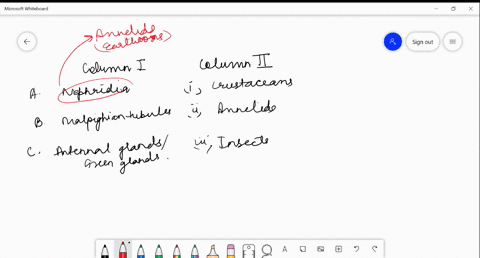 Microsoft Whiteboard
Sign out
Annelids
(earthworms)
Column I
Column II
A. Nephridia
i, Crustaceans
B. Malpighian-tubules
ii, Annelids
C. Antennal glands/
Green glands.
iii, Insects